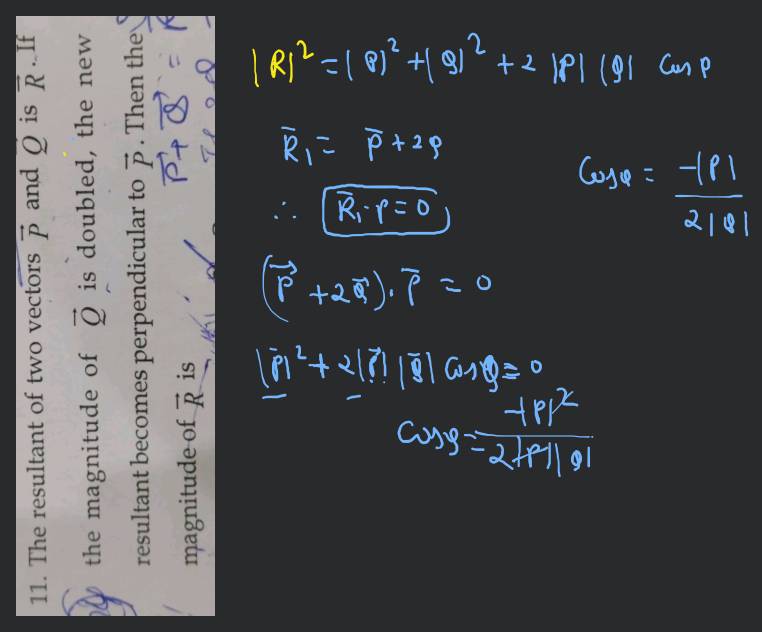 11. The resultant of two vectors P⃗ and Q⃗ is R⃗. If
the magnitude of Q⃗ is doubled, the new
resultant becomes perpendicular to P⃗. Then the
magnitude of R⃗ is
P⃗ + Q⃗ =
|R|² = |P|² + |Q|² + 2 |P| |Q| Cos θ
R̄₁ = P̄ + 2Q
∴ R̄₁·P = 0
(P⃗ + 2Q⃗)·P̄ = 0
|P̄|² + 2|P⃗| |Q̄| Cos θ = 0
Cos θ = -|P|² / 2|P||Q|
Cos θ = -|P| / 2|Q|